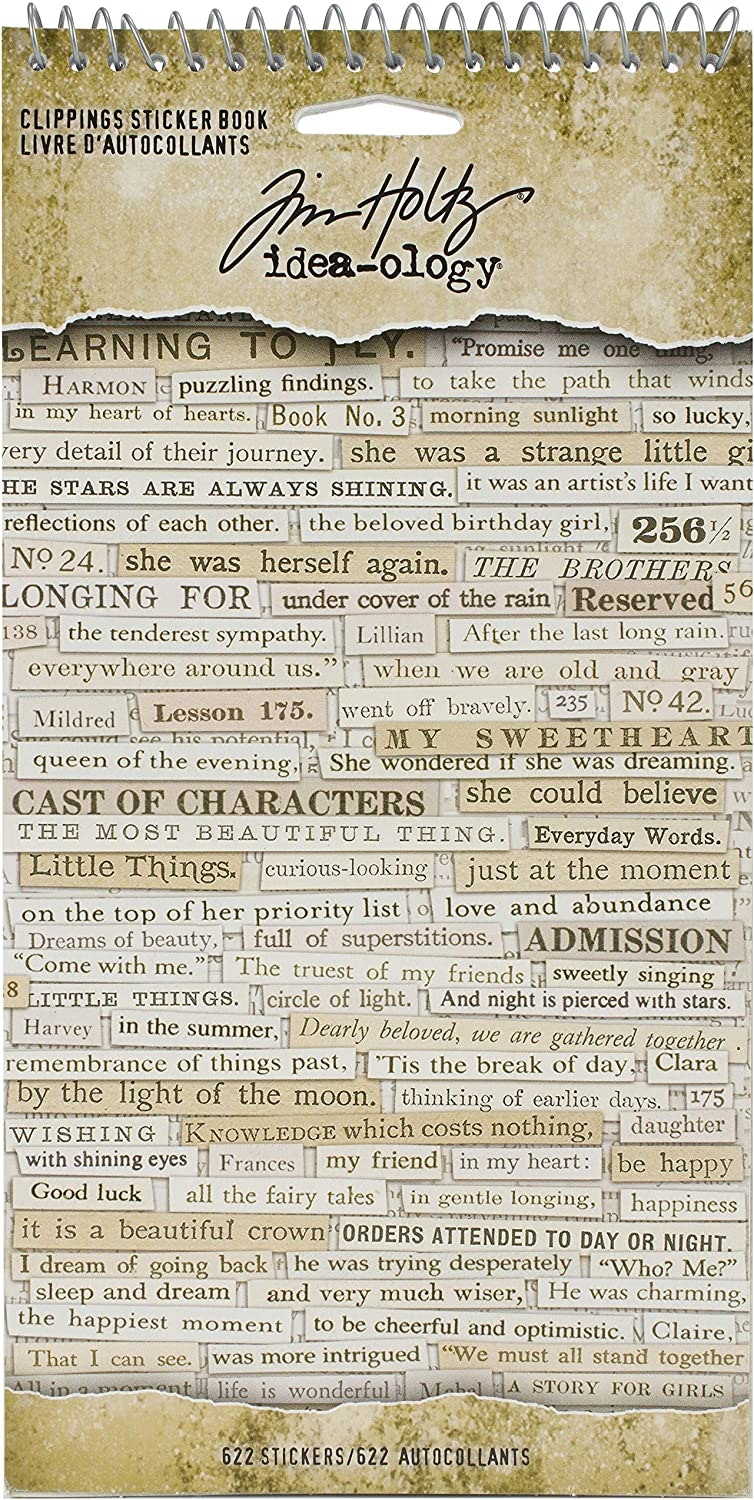 CLIPPINGS STICKER BOOK
LIVRE D'AUTOCOLLANTS
Tim Holtz®
idea-ology®
LEARNING TO FLY. "Promise me one thing,
HARMON puzzling findings. to take the path that winds
in my heart of hearts. Book No. 3 morning sunlight so lucky,
very detail of their journey. she was a strange little gi
HE STARS ARE ALWAYS SHINING. it was an artist's life I want
reflections of each other. the beloved birthday girl, 256 1/2
No 24. she was herself again. THE BROTHERS
LONGING FOR under cover of the rain Reserved 56
138 the tenderest sympathy. Lillian After the last long rain.
everywhere around us." when we are old and gray
Mildred Lesson 175. went off bravely. 235 No 42.
She could see his potential, MY SWEETHEART
queen of the evening, She wondered if she was dreaming.
CAST OF CHARACTERS she could believe
THE MOST BEAUTIFUL THING. Everyday Words.
Little Things. curious-looking just at the moment
on the top of her priority list love and abundance
Dreams of beauty, full of superstitions. ADMISSION
"Come with me." The truest of my friends sweetly singing
8 LITTLE THINGS. circle of light. And night is pierced with stars.
Harvey in the summer, Dearly beloved, we are gathered together
remembrance of things past, 'Tis the break of day, Clara
by the light of the moon. thinking of earlier days. 175
WISHING KNOWLEDGE which costs nothing, daughter
with shining eyes Frances my friend in my heart: be happy
Good luck all the fairy tales in gentle longing, happiness
it is a beautiful crown ORDERS ATTENDED TO DAY OR NIGHT.
I dream of going back he was trying desperately "Who? Me?"
sleep and dream and very much wiser, He was charming,
the happiest moment to be cheerful and optimistic. Claire,
That I can see. was more intrigued "We must all stand together
All in a moment life is wonderful Mabel A STORY FOR GIRLS
622 STICKERS/622 AUTOCOLLANTS